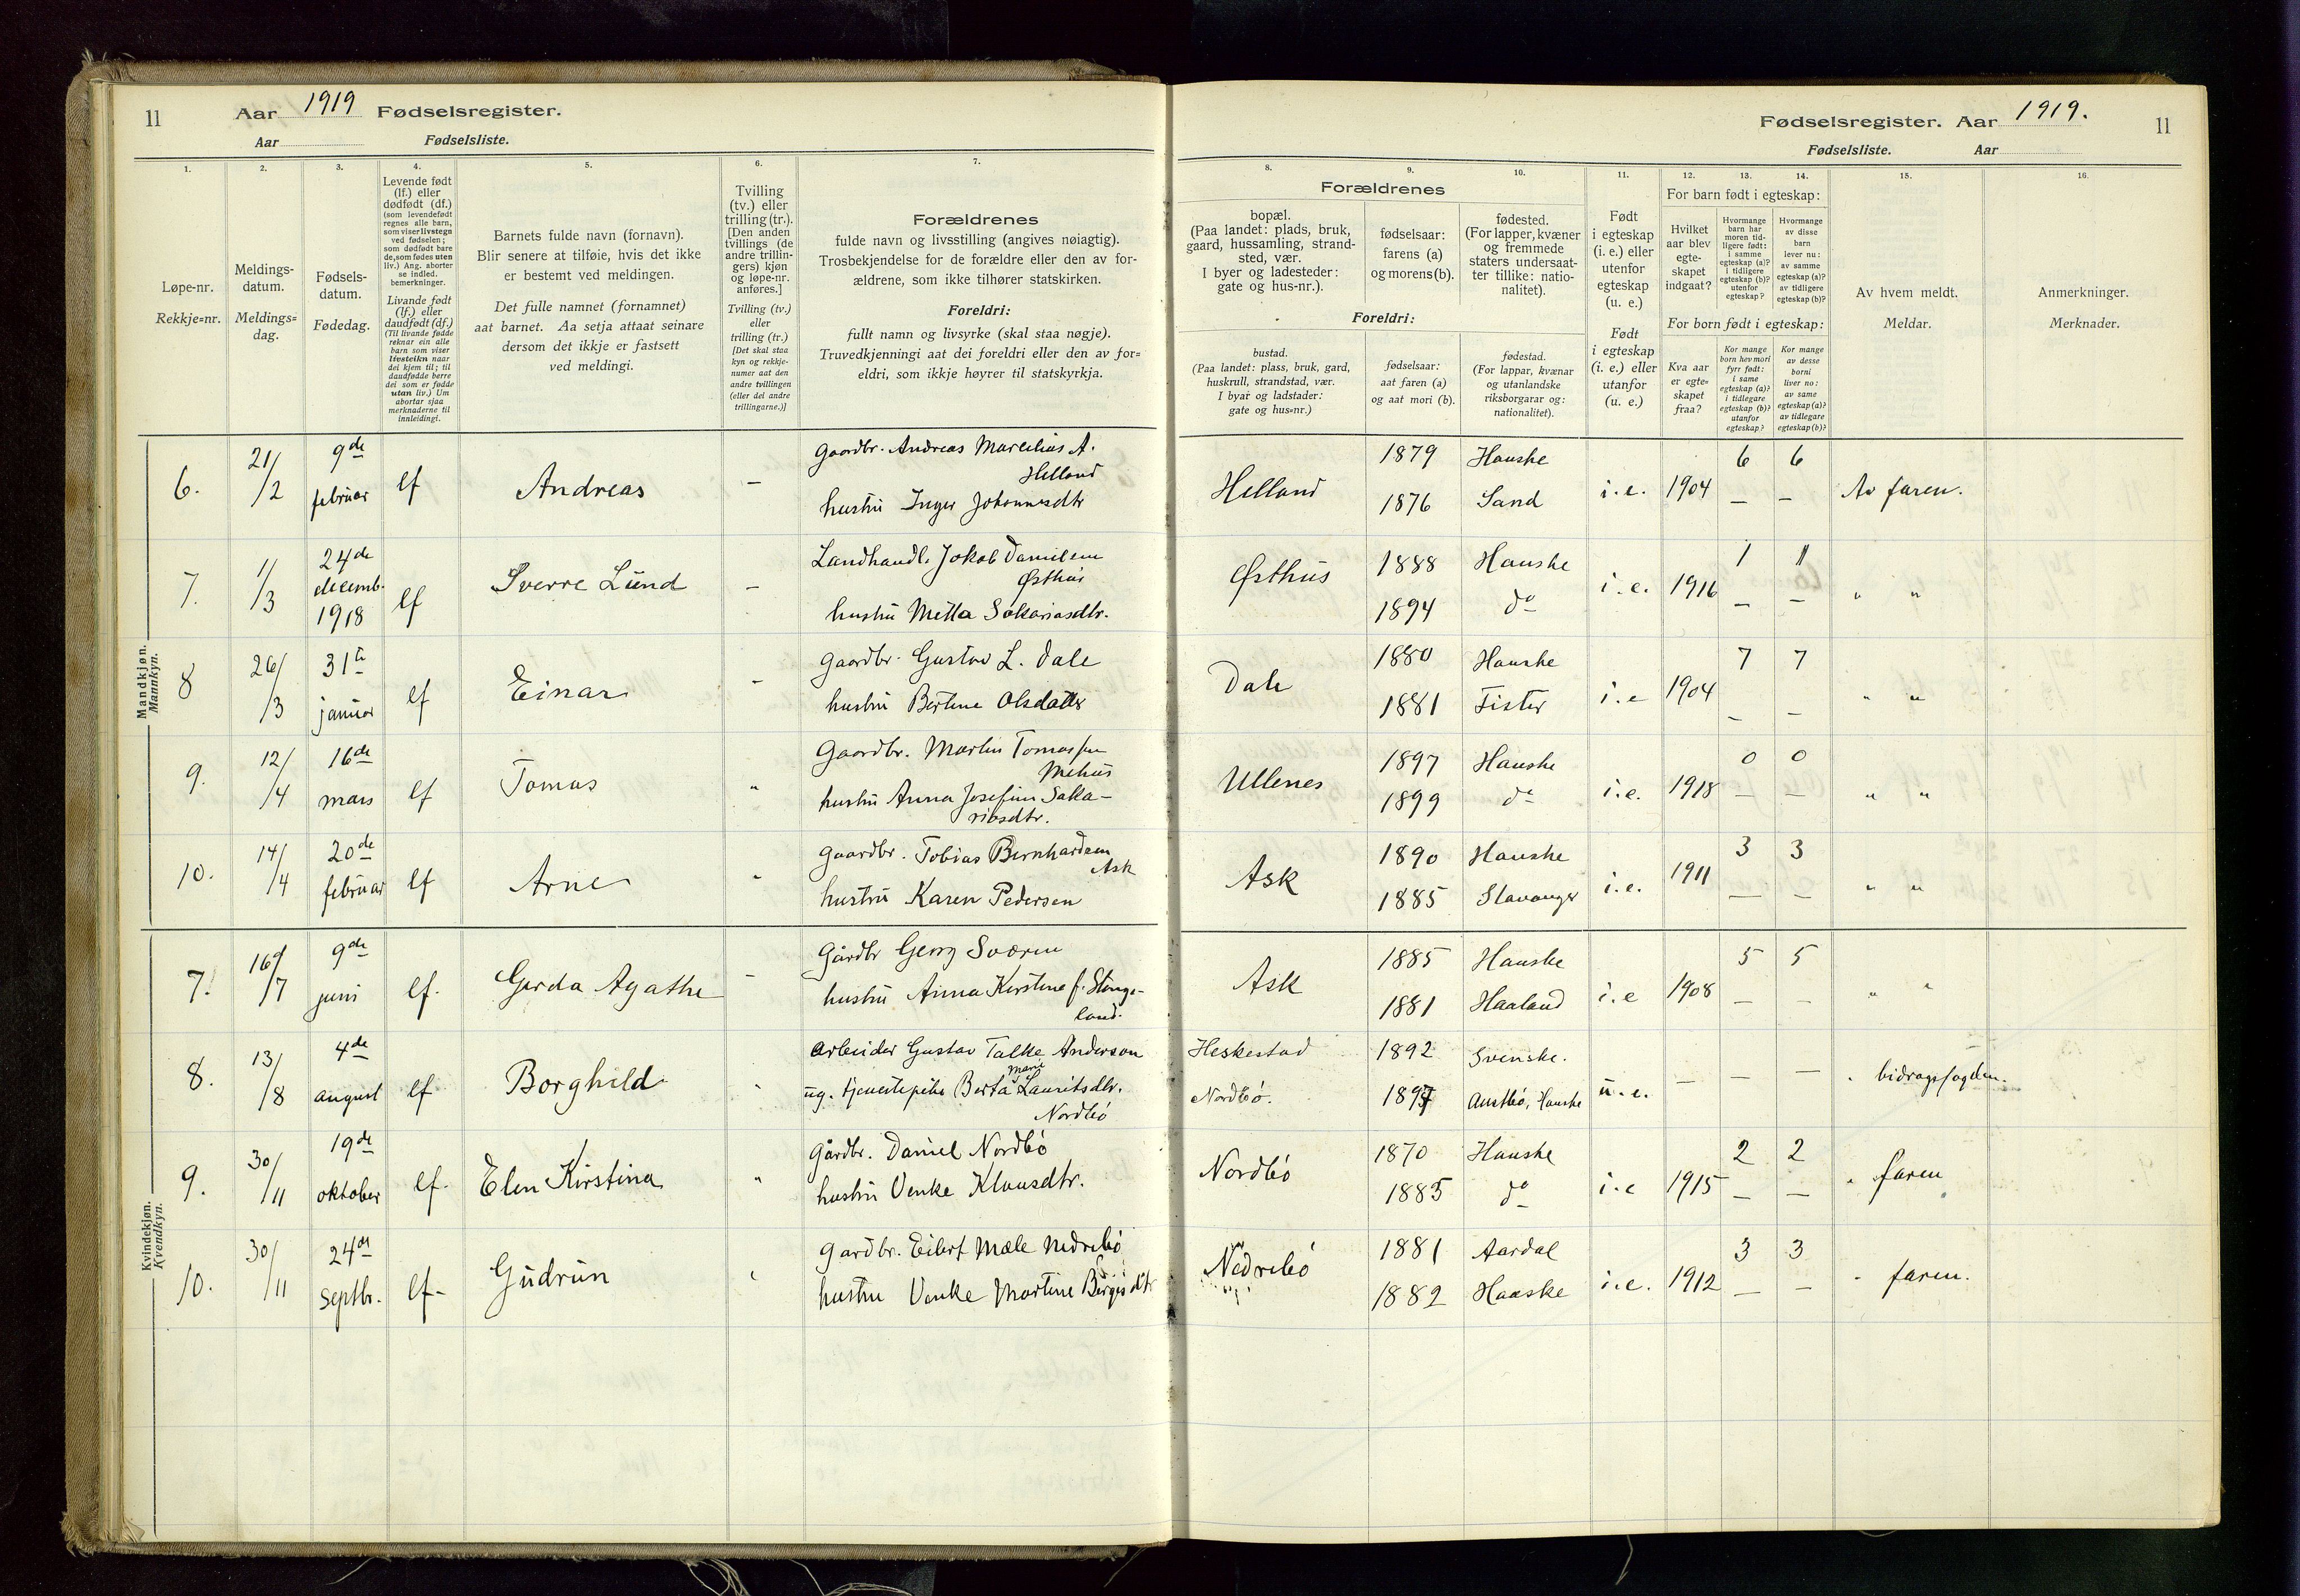 11 Aar 1919 Fødselsregister.
Aar Fødselsliste.
1. 2. 3. 4. 5. 6. 7.
Løpe-nr.
Rekkje=nr.
Meldings-
datum.
Meldings=
dag.
Fødsels-
datum.
Fødedag.
Levende født
(lf.) eller
dødfødt (df.)
(som levendefødt
regnes alle barn,
som viser livstegn
ved fødselen;
som dødfødt bare
de, som fødes uten
liv.) Ang. aborter
se indled.
bemerkninger.
Livande født
(lf.) eller
daudfødt (df.)
(Til livande fødde
reknar ein alle
barn som viser
livsteikn naar
dei kjem til; til
daudfødde berre
dei som er fødde
utan liv.) Um
abortar sjaa
merknaderne til
innleidingi.
Barnets fulde navn (fornavn).
Blir senere at tilføie, hvis det ikke
er bestemt ved meldingen.
Det fulle namnet (fornamnet)
aat barnet. Aa setja attaat seinare
dersom det ikkje er fastsett
ved meldingi.
Tvilling
(tv.) eller
trilling (tr.).
[Den anden
tvillings (de
andre trillin-
gers) kjøn
og løpe-nr.
anføres.]
Tvilling (tv.)
eller
trilling (tr.)
[Det skal staa
kyn og rekkje-
numer aat den
andre tvillingen
(eller dei andre
trillingarne.)]
Forældrenes
fulde navn og livsstilling (angives nøiagtig).
Trosbekjendelse for de forældre eller den av for-
ældrene, som ikke tilhører statskirken.
Foreldri:
fullt namn og livsyrke (skal staa nøgje).
Truvedkjenningi aat dei foreldri eller den av for=
eldri, som ikkje høyrer til statskyrkja.
Mandkjøn.
Mannkyn.
6. 21/2 9de februar lf Andreas — Gaardbr. Andreas Marcelius A.
Helland
hustru Inger Johannesdtr
7. 1/3 24de decemb. 1918 lf Sverre Lund — Landhandl. Jakob Danielsen
Østhus
hustru Metta Sakariasdtr.
8 26/3 31te januar lf Einar — Gaardbr. Gustav L. Dale
hustru Bertine Olsdatter
9. 12/4 16de mars lf Tomas " Gaardbr. Martin Tomassen
Mehus
hustru Anna Josefine Saka-
riasdtr.
10. 14/4 20de februar lf Arne " Gaardbr. Tobias Bernhardsen
Ask
hustru Karen Pedersen
Kvindekjøn.
Kvendkyn.
7. 16/7 9de juni lf. Gerda Agathe — Gårdbr Georg Sværen
hustru Anna Kirstine f. Stange-
land.
8. 13/8 4de august lf Borghild " Arbeider Gustav Talke Anderson
ug. tjenestepike Berta Marie Lauritsdtr.
Nordbö
9. 30/11 19de oktober lf. Elen Kirstina " Gårdbr. Daniel Nordbö
hustru Venke Klausdtr.
10. 30/11 24de Septbr. lf- Gudrun " Gardbr. Eilert Mæle Nedrebö
hustru Venke Martine Börgesdtr
Fødselsregister. Aar 1919. 11
Fødselsliste. Aar
8. 9. 10. 11. 12. 13. 14. 15. 16.
Forældrenes
bopæl.
(Paa landet: plads, bruk,
gaard, hussamling, strand-
sted, vær.
I byer og ladesteder:
gate og hus-nr.).
fødselsaar:
farens (a)
og morens (b).
fødested.
(For lapper, kvæner
og fremmede
staters undersaat-
ter tillike: natio-
nalitet).
Foreldri:
bustad.
(Paa landet: plass, bruk, gard,
huskrull, strandstad, vær.
I byar og ladstader:
gate og hus=nr.)
fødselsaar:
aat faren (a)
og aat mori (b).
fødestad.
(For lappar, kvænar
og utanlandske
riksborgarar og:
nationalitet).
Født
i egteskap
(i. e.) eller
utenfor
egteskap
(u. e.)
Født
i egteskap
(i. e.) eller
utanfor
(u. e.)
For barn født i egteskap:
Hvilket
aar blev
egte-
skapet
indgaat?
Hvormange
barn har
moren tid-
ligere født:
i samme
egteskap (a)?
i tidligere
egteskap (b)?
utenfor
egteskap?
Hvormange
av disse
barn
lever nu:
av samme
egteskap (a)?
av tidligere
egteskap (b)?
For born født i egteskap:
Kva aar
er egte=
skapet
fraa?
Kor mange
born hev mori
fyrr født:
i same
egteskap (a)?
i tidlegare
egteskap (b)?
utanfor
egteskap?
Kor mange
av desse
borni
liver no:
av same
egteskap (a)?
av tidlegare
egteskap (b)?
Av hvem meldt.
Meldar.
Anmerkninger.
Merknader.
Helland 1879 Hauske i.e. 1904 6 6 Av faren.
1876 Sand — —
Østhus 1888 Hauske i.e. 1916 1 1 " "
1894 do — —
Dale 1880 Hauske i.e 1904 7 7 " "
1881 Fister — —
Ullenes 1897 Hauske i.e. 1918 0 0 " "
1899 do — —
Ask 1890 Hauske i.e. 1911 3 3 " "
1885 Stavanger — —
Ask 1885 Hauske i.e 1908 5 5 " "
1881 Haaland — —
Heskestad 1892 Svenske. u.e. — — — " bidragsfogden.
Nordbö. 1897 Austbö, Hauske
Nordbö 1870 Hauske i.e 1915 2 2 " faren
1885 do — —
Nedrebö 1881 Aardal i.e. 1912 3 3 " faren.
1882 Hauske — —